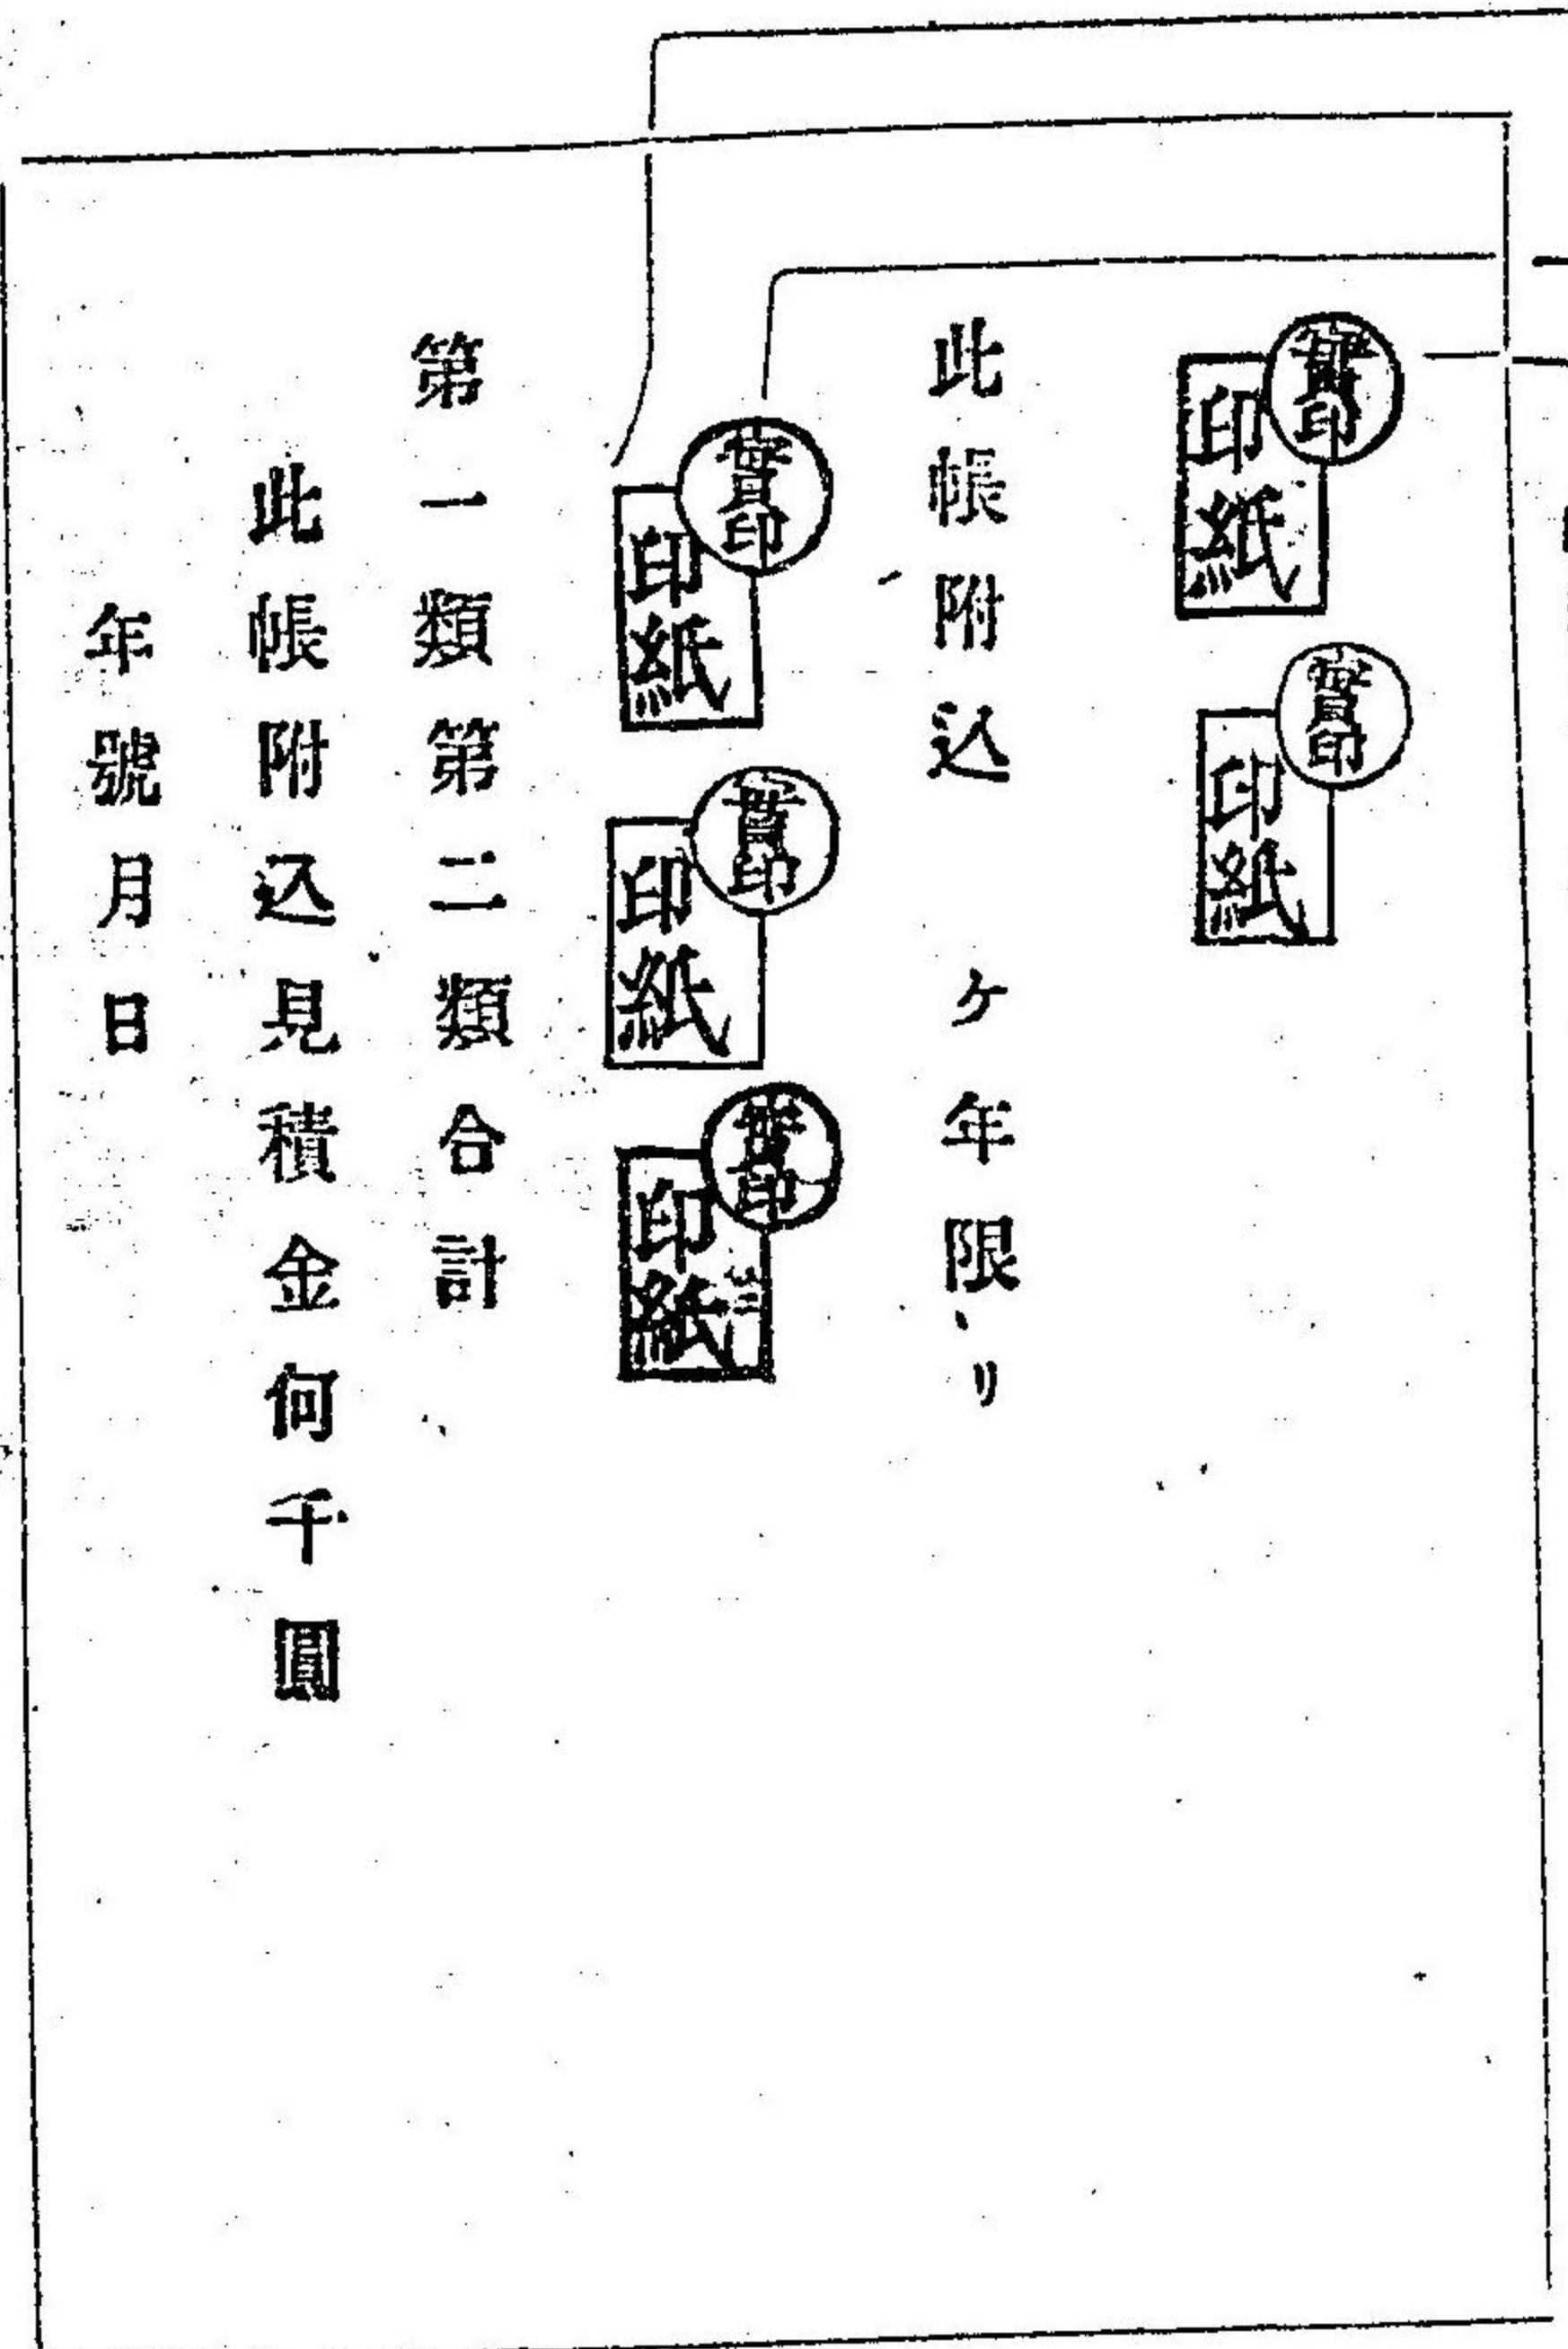 實印
印紙
實印
印紙
此帳附込　ヶ年限リ
實印
印紙
實印
印紙
實印
印紙
第一類第二類合計
此帳附込見積金何千圓
年號月日